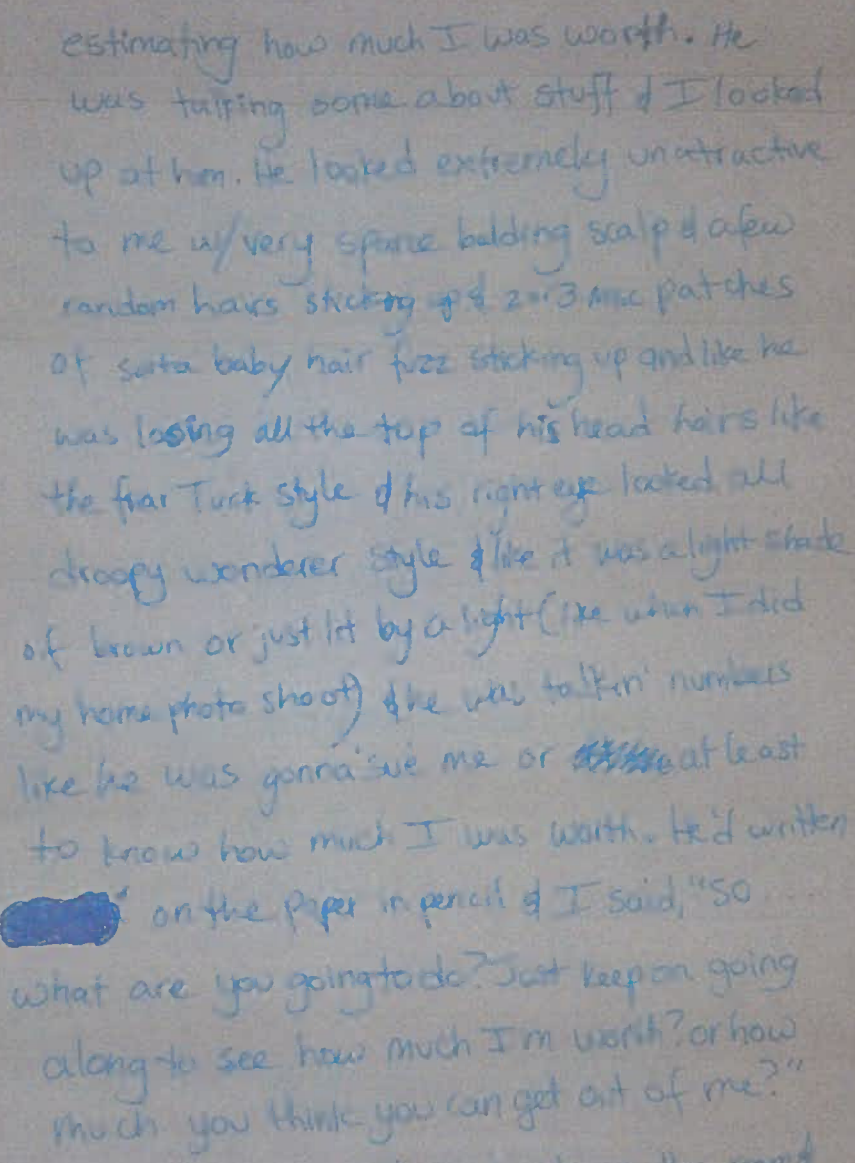 estimating how much I was worth. He
was talking some about stuff & I looked
up at him. He looked extremely unatractive
to me w/very sparce balding scalp & a few
random hairs sticking up & 2 or 3 patches
of sorta baby hair fuzz sticking up and like he
was losing all the top of his head hairs like
the friar Tuck style & his right eye looked all
droopy wonderer style & like it was a light shade
of brown or just lit by a light (like when I did
my home photo shoot) & he was talkin' numbers
like he was gonna sue me or at least
to know how much I was worth. He'd written
on the paper in pencil & I said, "So ....
what are you going to do? Just keep on going
along to see how much I'm worth? or how
much you think you can get out of me?"